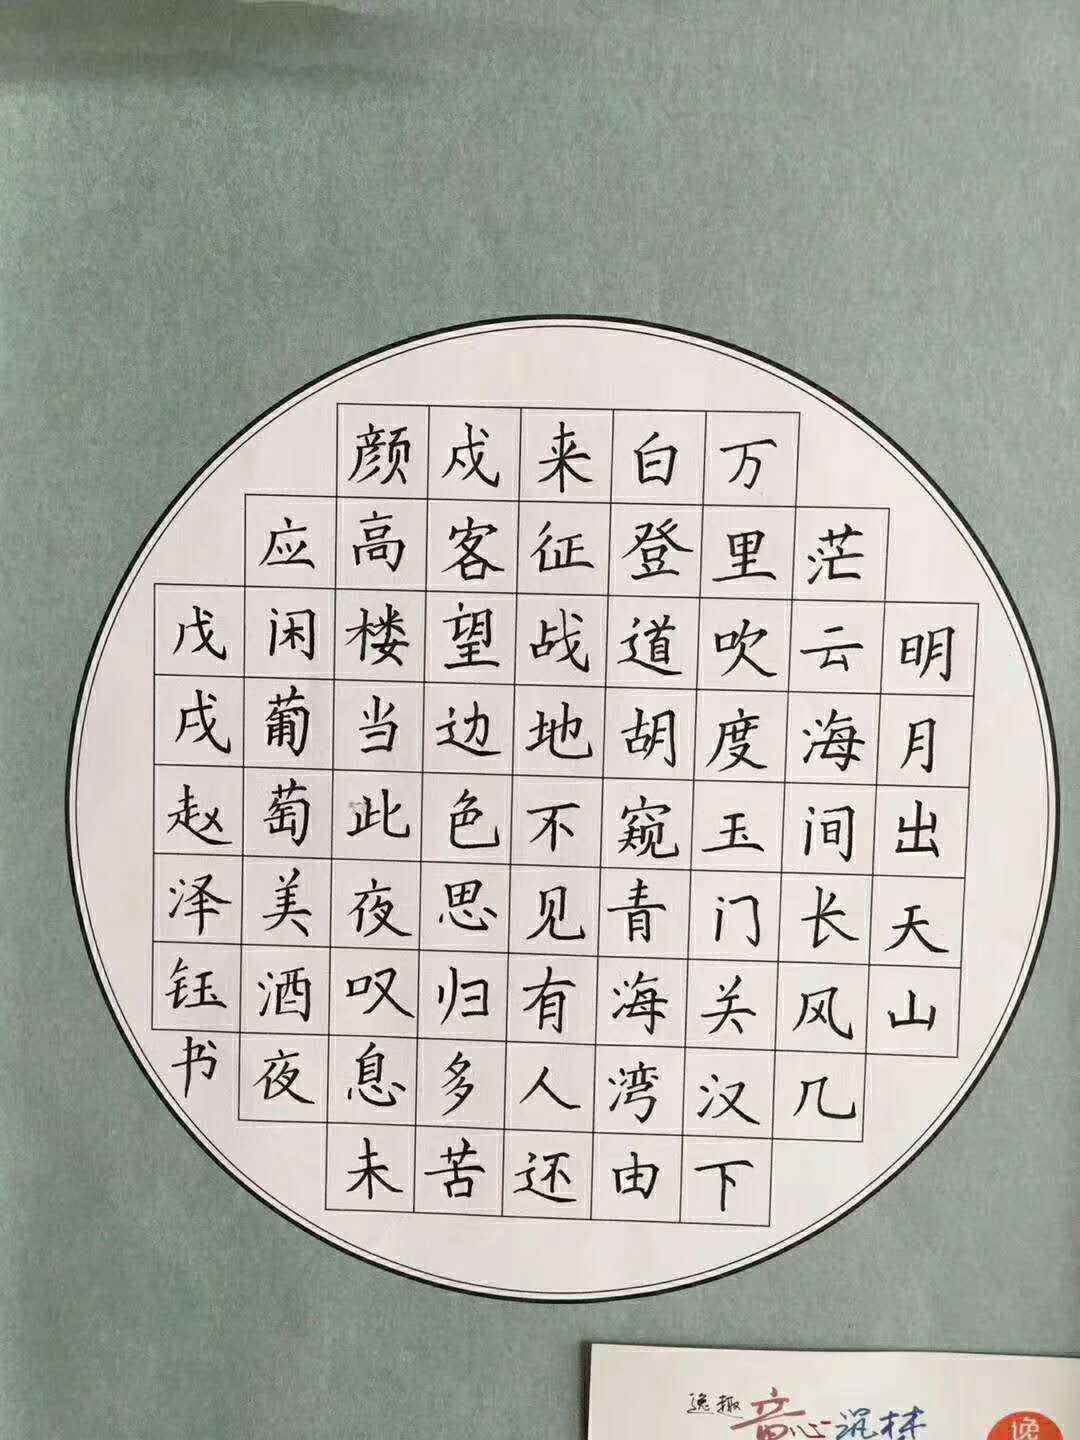 明月出天山
茫云海间长风几
万里吹度玉门关汉下
白登道胡窥青海湾由
来征战地不见有人还
戍客望边色思归多苦
颜高楼当此夜叹息未
应闲葡萄美酒夜
戊戌赵泽钰书